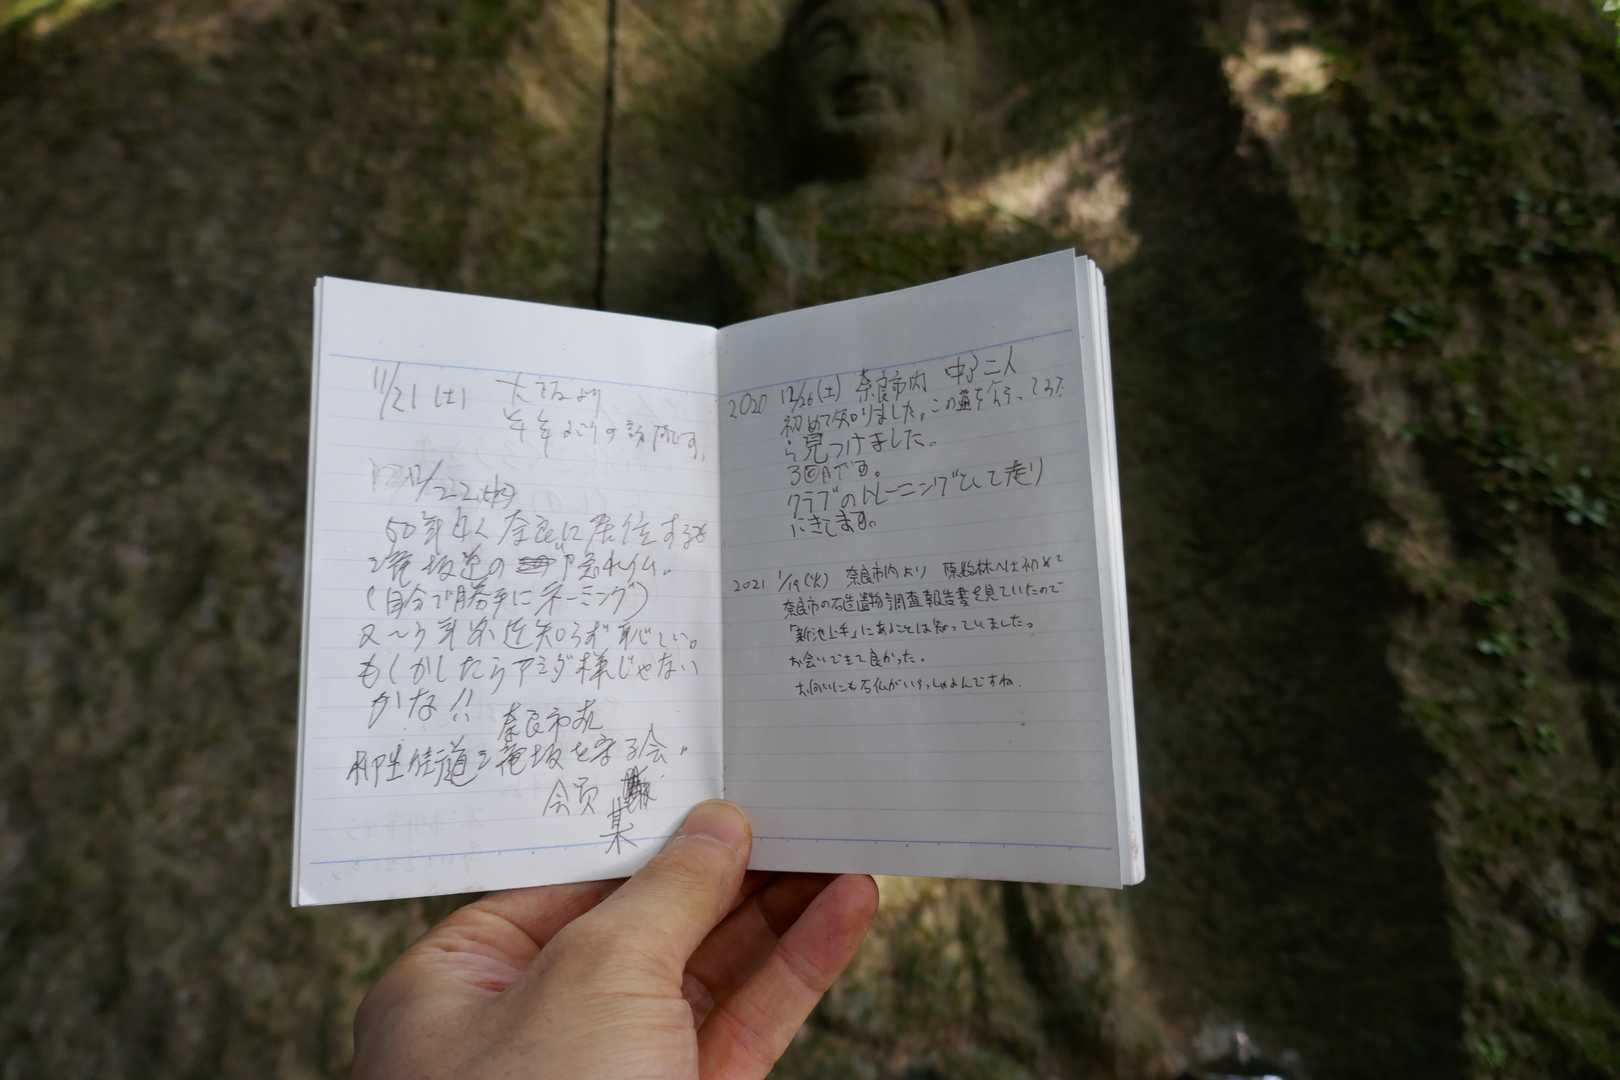 11/21 (土) 大阪より
半年ぶりの訪問です。
12/22
50年近く奈良に居住するも
滝坂道の 隠れ仏。
(自分で勝手にネーミング)
迄知らず恥しい。
もしかしたらアミダ様じゃない
かな!!
奈良市 
柳生街道 滝坂を守る会。
会員
某
2020 12/26(土) 奈良市内 中3 二人
初めて知りました。この道を
ら見つけました。
3回目です。
クラブのトレーニングとして走り
にきてます。
2021 1/19(火) 奈良市内より 原始林へは初めて
奈良市の石造遺物調査報告書を見ていたので
「新池上手」にあることは知っていました。
お会いできて良かった。
お向いにも石仏がいらっしゃるんですね。